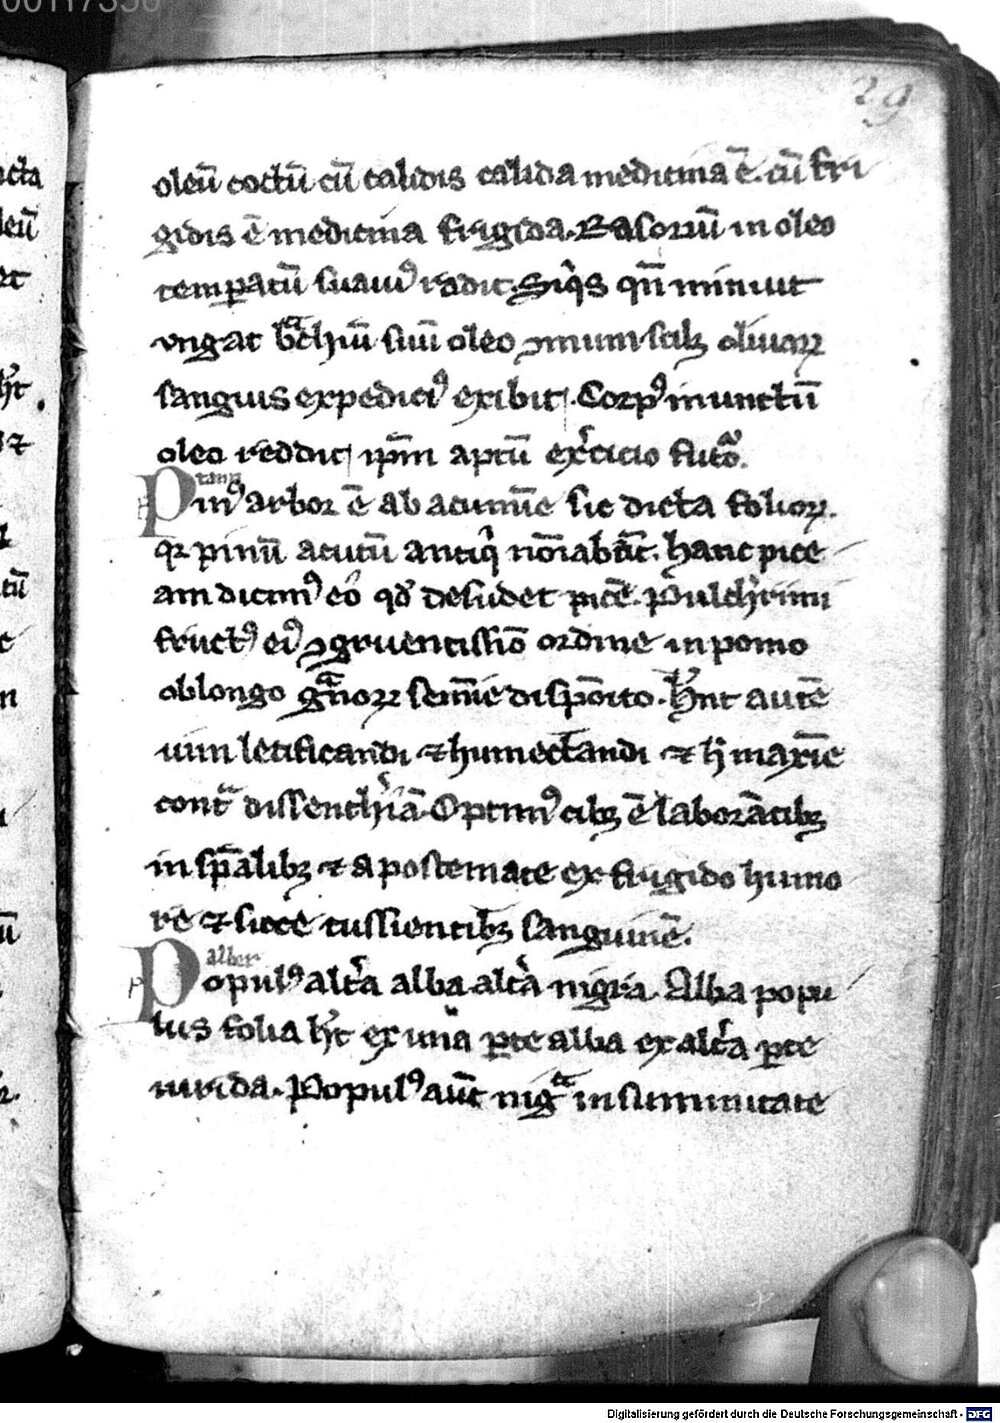 29
oleū coctū cū calidis calida medicina ē. cū fri
gidis ē medicina frigida. Rasoriū in oleo
temꝑatū suauiꝰ radit. Siqͥs qn̄ minuit
ungat bͣchiū suū oleo ꝯmuni scilꝫ oliuaꝝ
sanguis expediciꝰ exibit. Corpꝰ inunctū
oleo reddit ip̄m aptū exͤcicio
Pinꝰ arbor ē ab acumīe sic dicta folioꝝ.
qꝛ pinū acutū antiqͥ noīabāt. hanc pice
am dicimꝰ eo qd̓ desudet picē. Pulchͤrimi
fructꝰ eiꝰ ꝯgruentissīo ordine in pomo
oblongo gͣnoꝝ semīe dispōito. hn̄t autē
uim letificandi ⁊ humectandi ⁊ h̓ maxīe
contͣ dissenthͤiā. Optimꝰ cibꝫ ē laborātibꝫ
in sp̄alibꝫ ⁊ apostemate ex frigido humo
re ⁊ sicce tussientibꝫ sanguinē.
alber
Populꝰ altͤa alba altͤa nigra. Alba popu
lus folia hꝫt ex una ꝑte alba ex altͤa ꝑte
uirida. Populꝰ aūt nigͣ in summitate
Digitalisierung gefördert durch die Deutsche Forschungsgemeinschaft - DFG